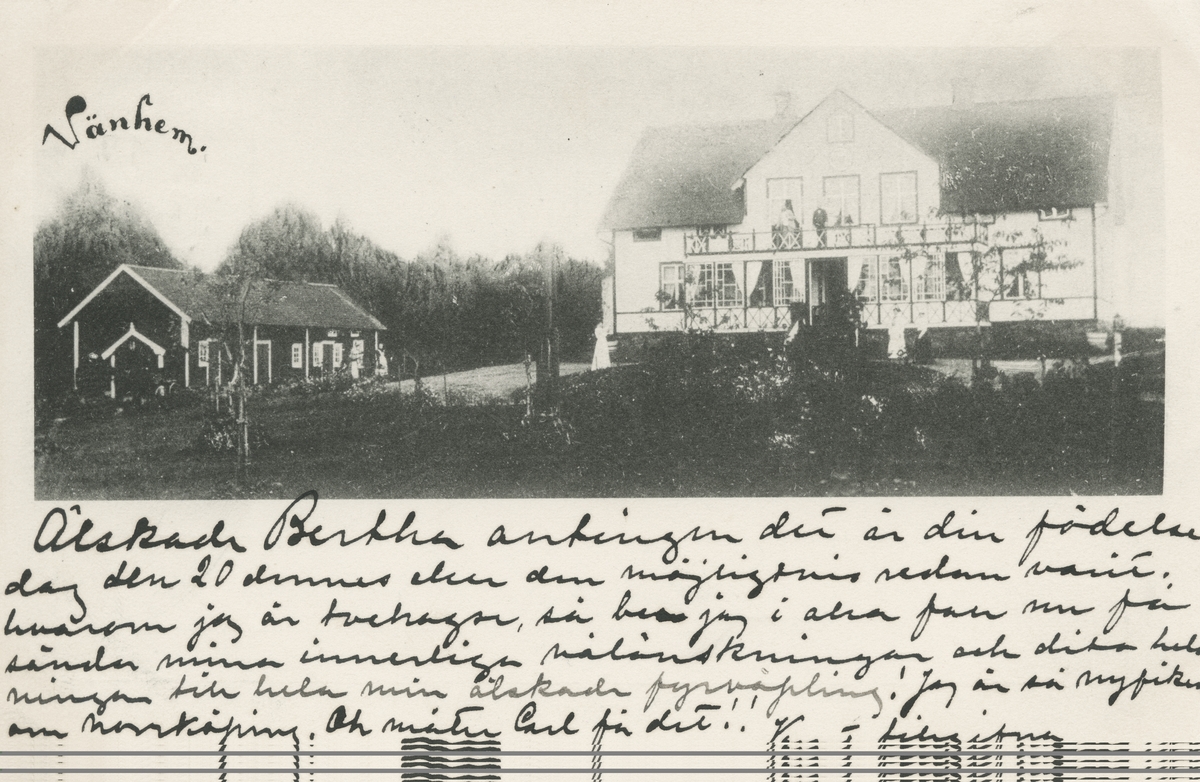 Vänhem.
Älskade Bertha antingen det är din födelse
dag den 20 dennes eller den möjligtvis redan varit,
hvarom jag är tvehågse, så ber jag i alla fall nu få
sända mina innerliga välönskningar och dito hels
ningar till hela min älskade fyrväpling! Jag är så nyfiken
om Norrköping. Oh måtte Carl få det!!